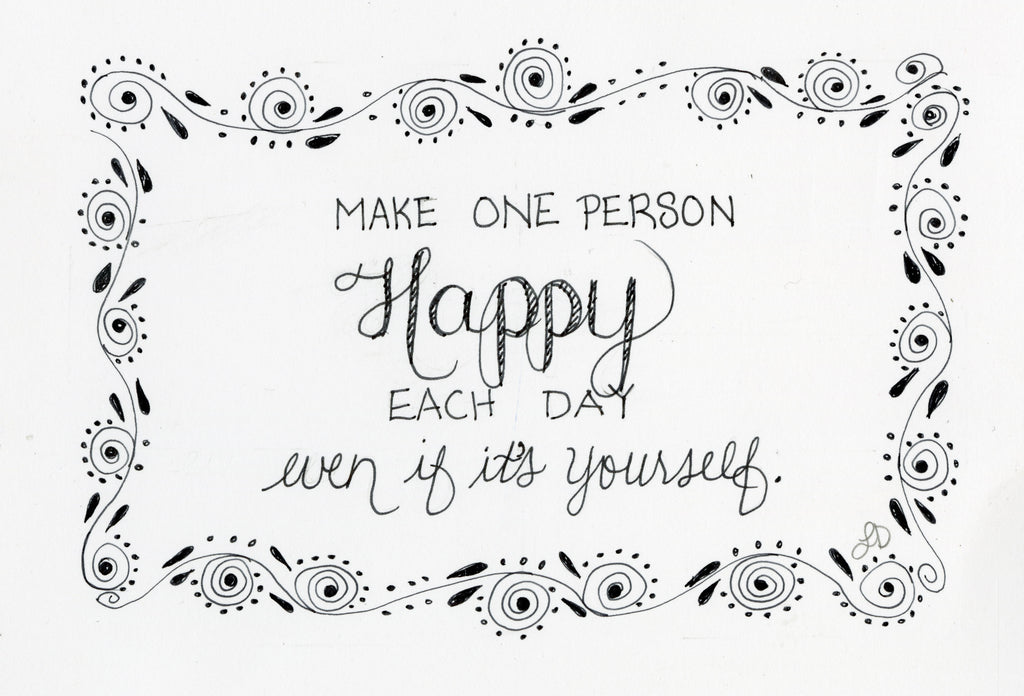 MAKE ONE PERSON
Happy
EACH DAY
even if it's yourself.
LD